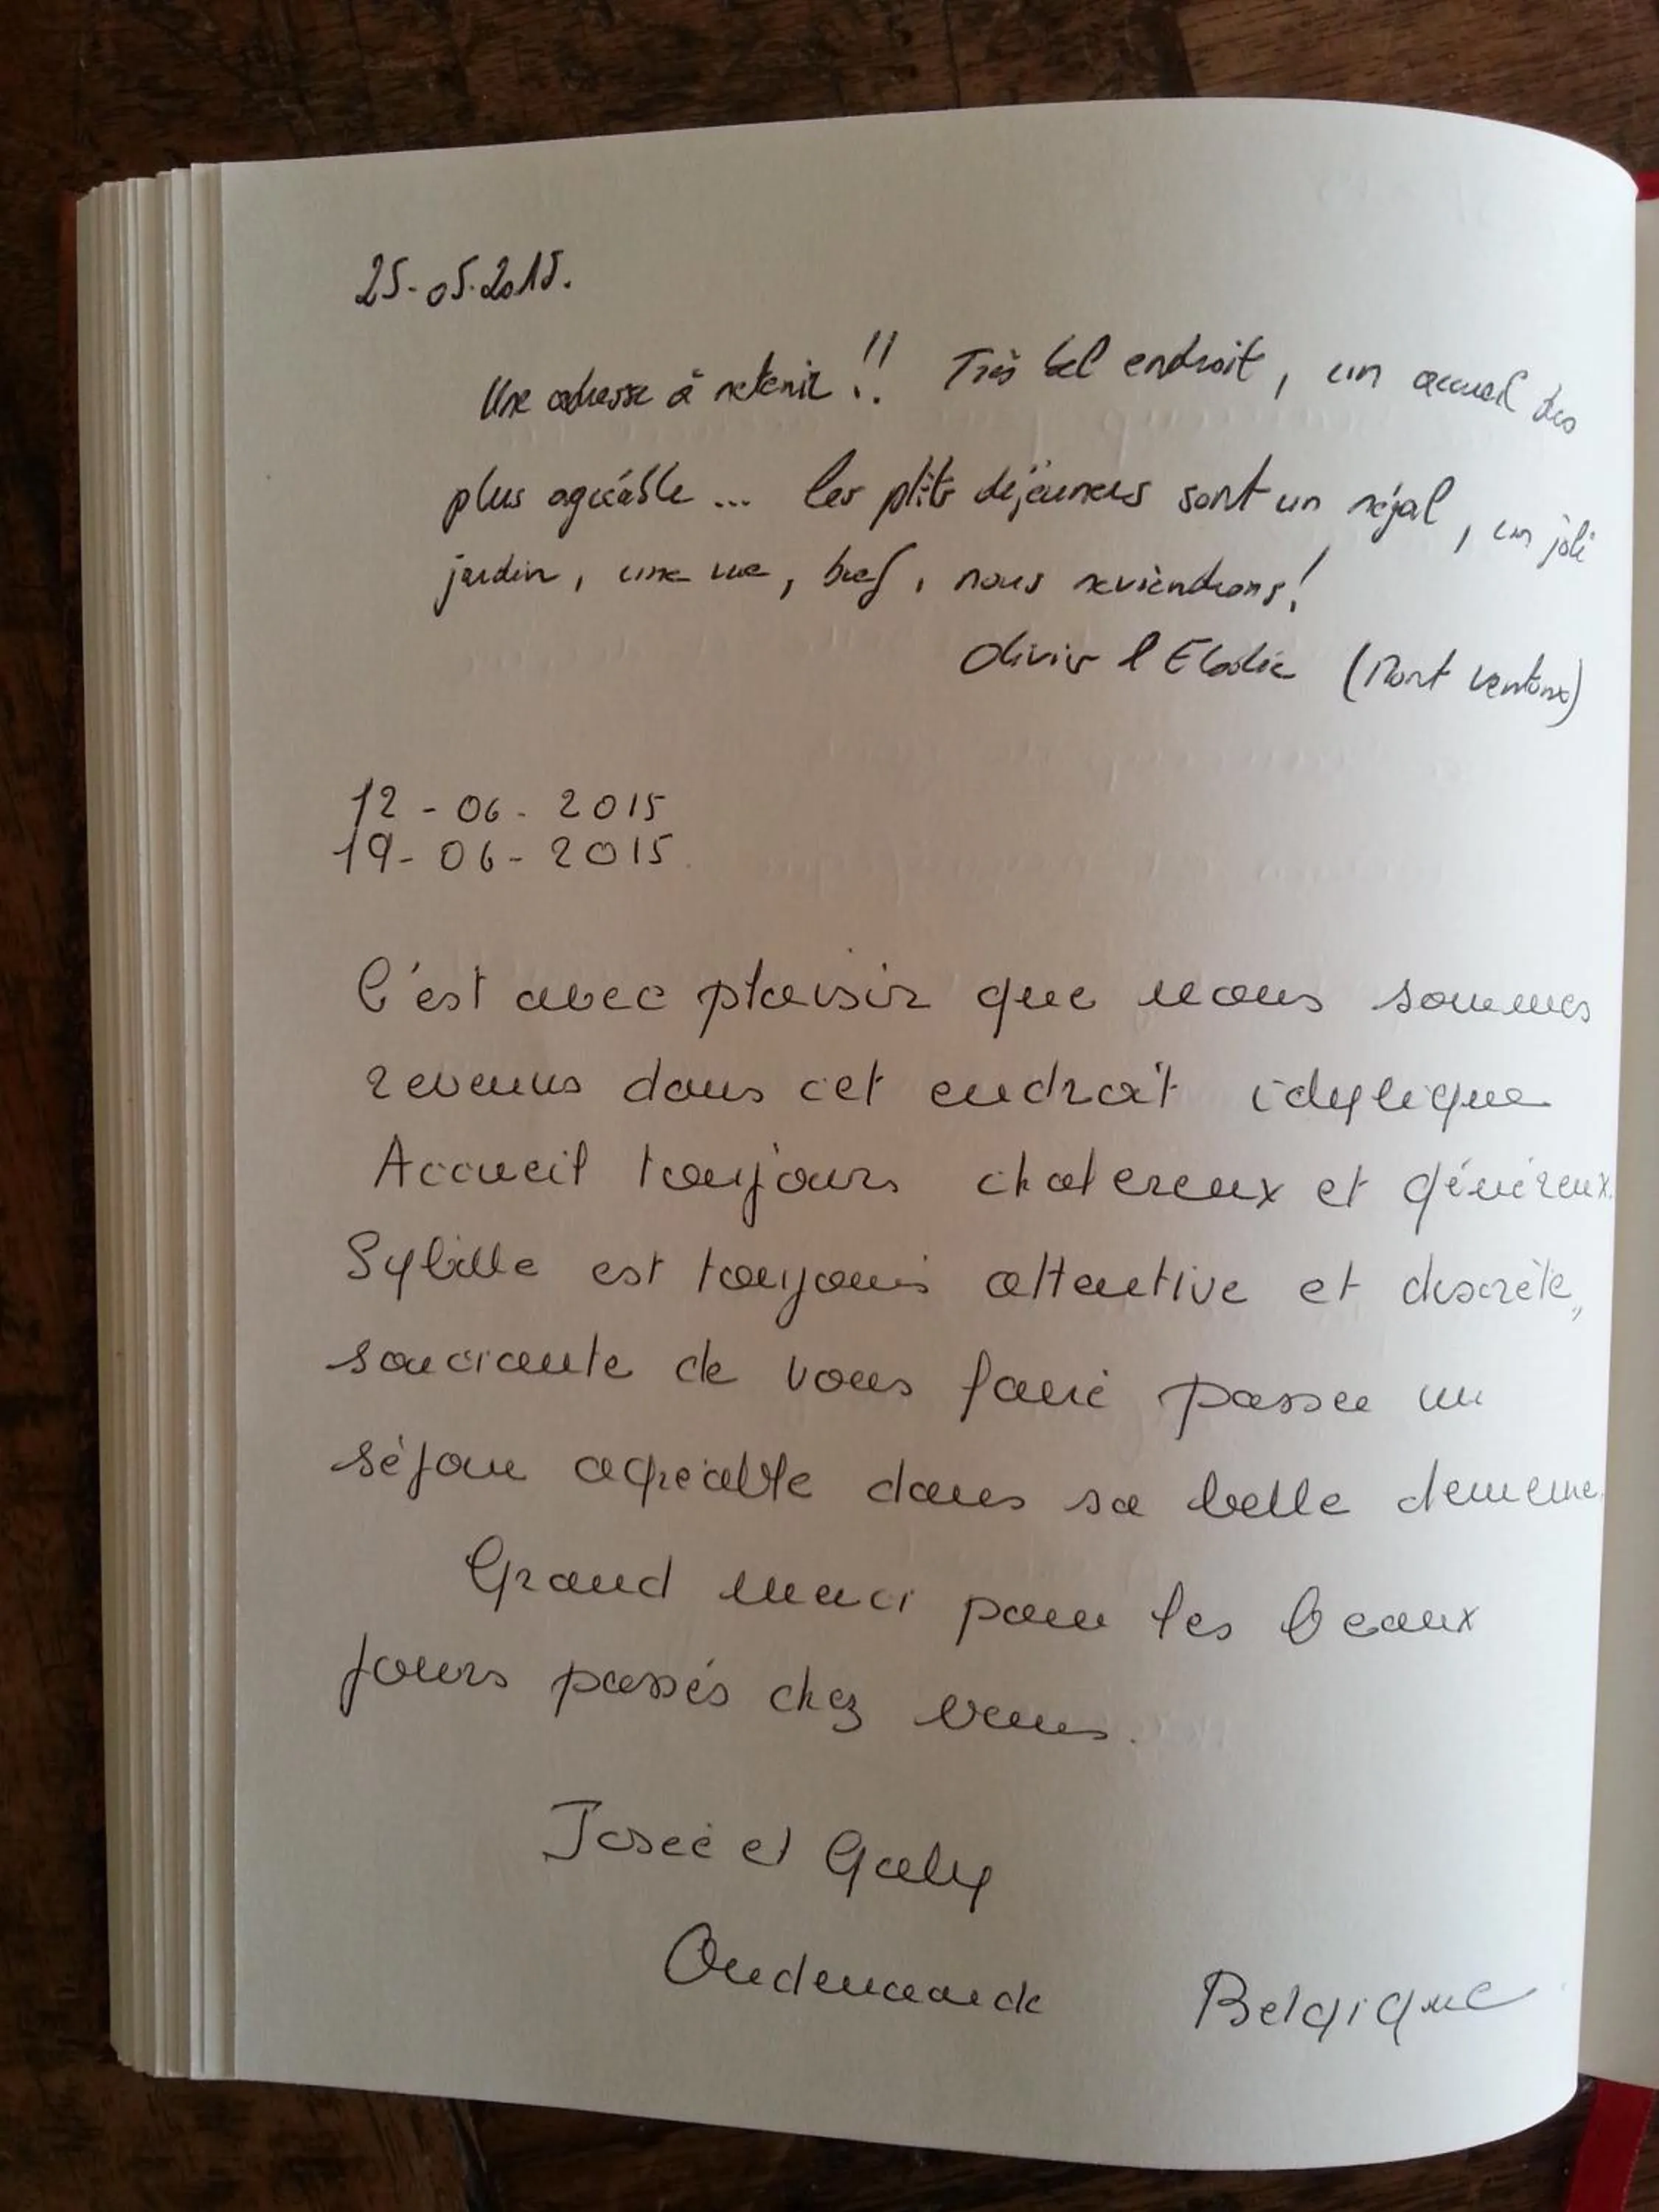 25-05-2015.
Une adresse à retenir !! Très bel endroit, un accueil des
plus agréable ... les ptits déjeuners sont un régal, un joli
jardin, une vue, bref, nous reviendrons!
Olivier & Elodie (Mont Ventoux)
12-06-2015
19-06-2015
C'est avec plaisir que nous sommes
revenus dans cet endroit idylique
Accueil toujours chalereux et généreux.
Sybille est toujours attentive et discrète,
souciante de vous faire passer un
séjour agréable dans sa belle demeure.
Grand merci pour les beaux
jours passés chez vous.
Josée et Gaby
Oudenaarde Belgique